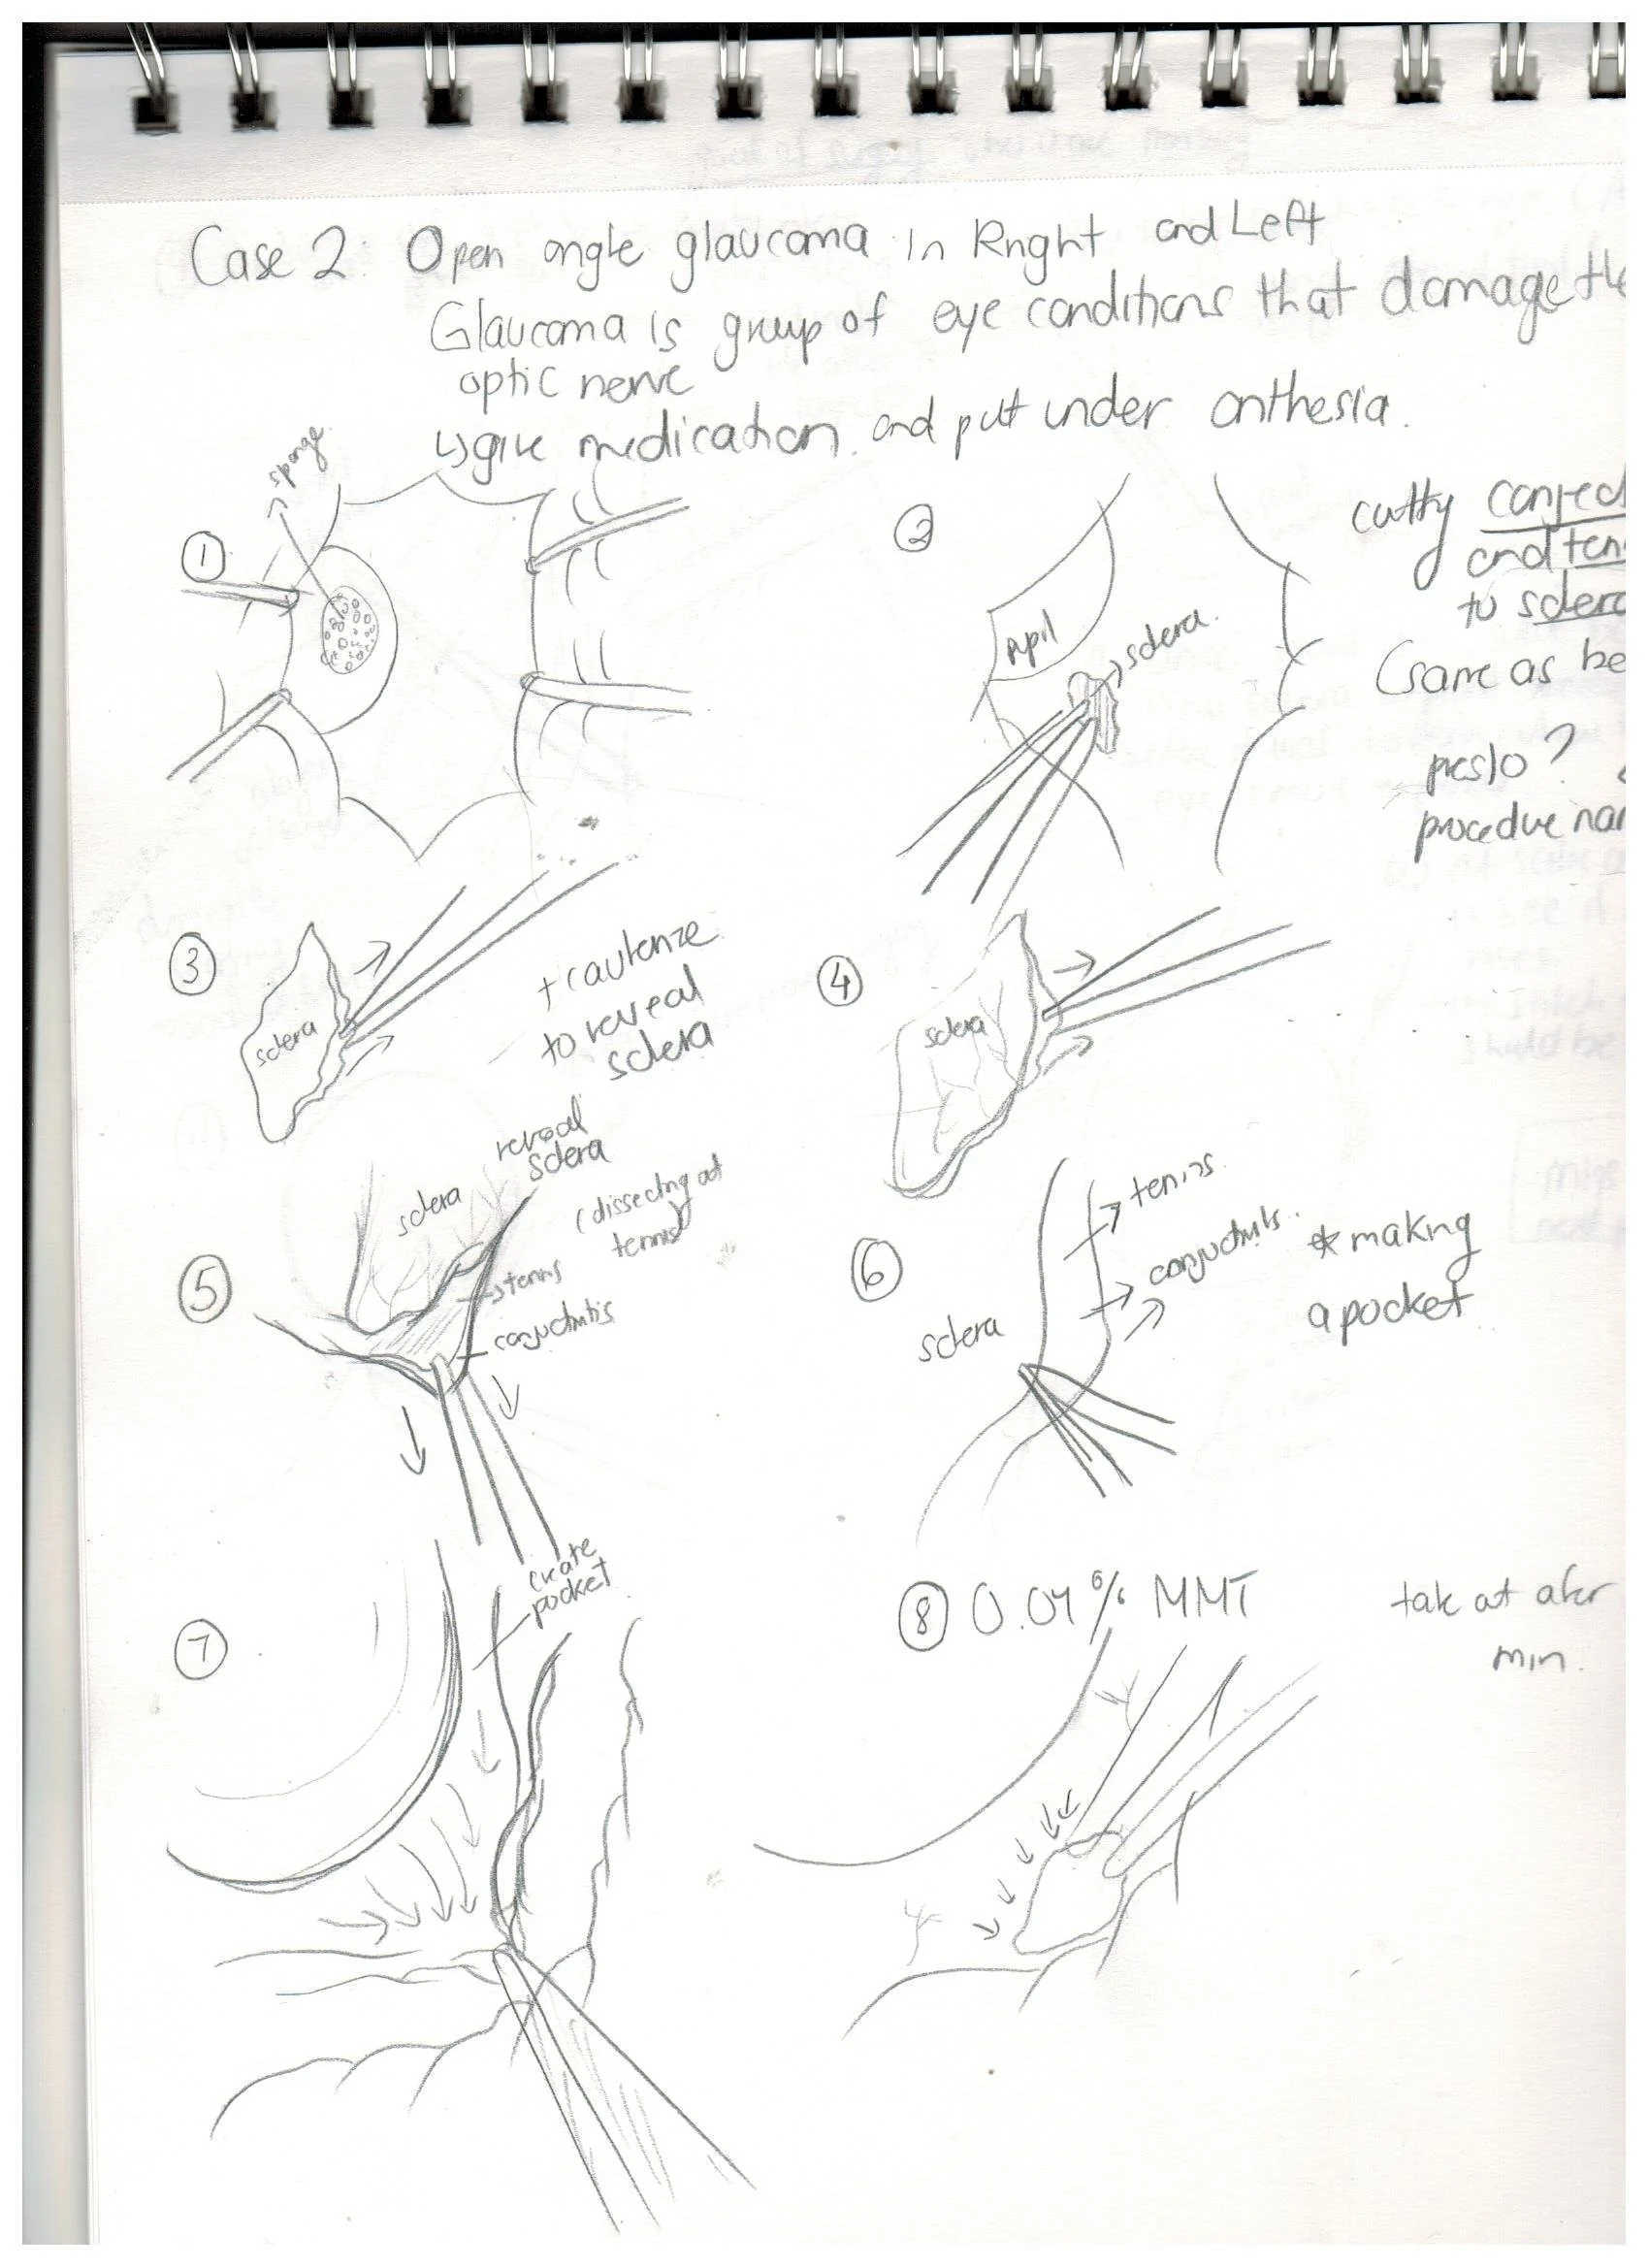 Case 2: Open angle glaucoma in Rnght and Left
Glaucoma is group of eye conditions that damage the
optic nerve
↳give medication and put under anthesia.
sponge
①
②
pupil
sclera
conjec
and ten
to sclera
(same as be
preslo?
procedue nar
③
sclera
+ cauterize
to reveal
sclera
④
sclera
⑤
sclera
reveal
sclera
(dissecting out
tennis)
conjuctivitis
⑥
tenins
conjuctivits.
sclera
* making
a pocket
⑦
create
pocket
⑧ 0.04% MMT
take out after
min.